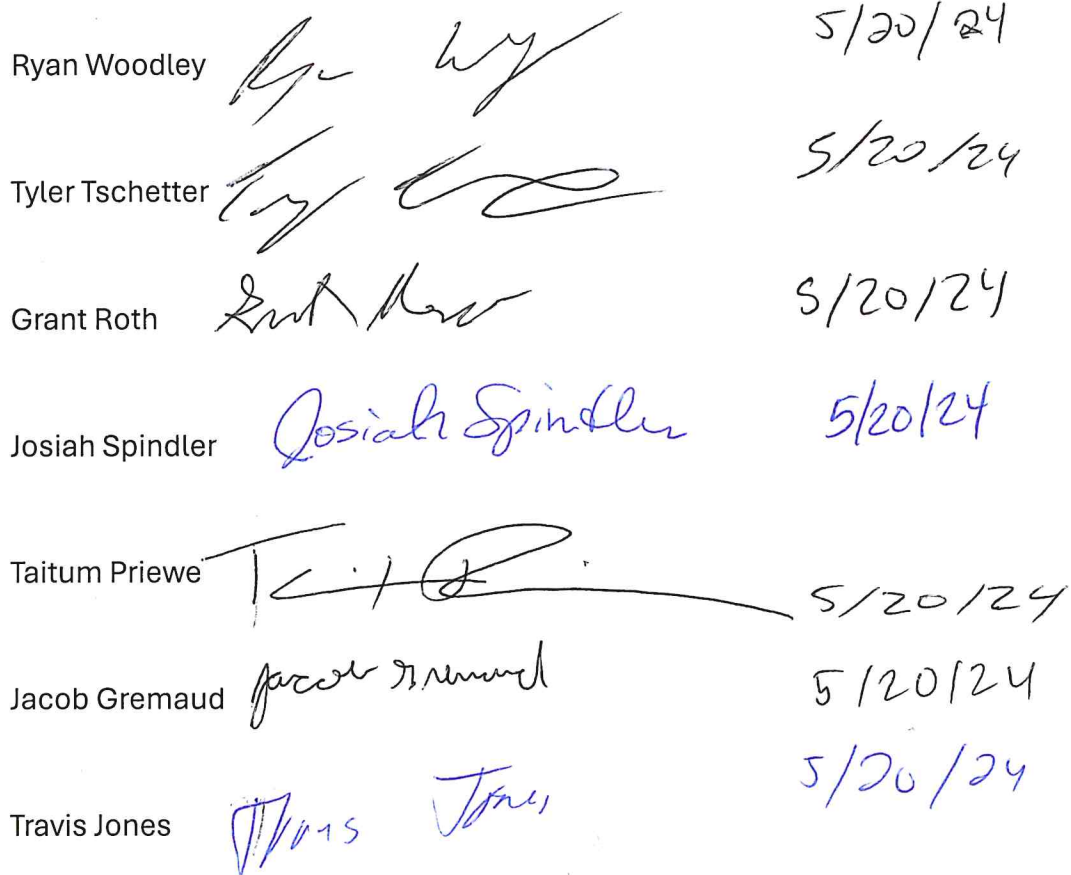 Ryan Woodley 5/20/24
Tyler Tschetter 5/20/24
Grant Roth 5/20/24
Josiah Spindler Josiah Spindler 5/20/24
Taitum Priewe 5/20/24
Jacob Gremaud Jacob Gremaud 5/20/24
Travis Jones Jones 5/20/24